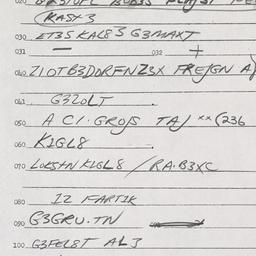 KAST3
030 ET3S KAL8S G3MAXT
031 032
040 ZIOTB3DDRFNZ3X FREJGN A
041 G3ZOLT
050 A CI. GROJS TAJ xx (236
060 K1GL8
070 LOKS+N K1GL8 / RA.B3XC
080 IZ FARTIK
090 G3GRU.TN
100 G3FEL8T AL3